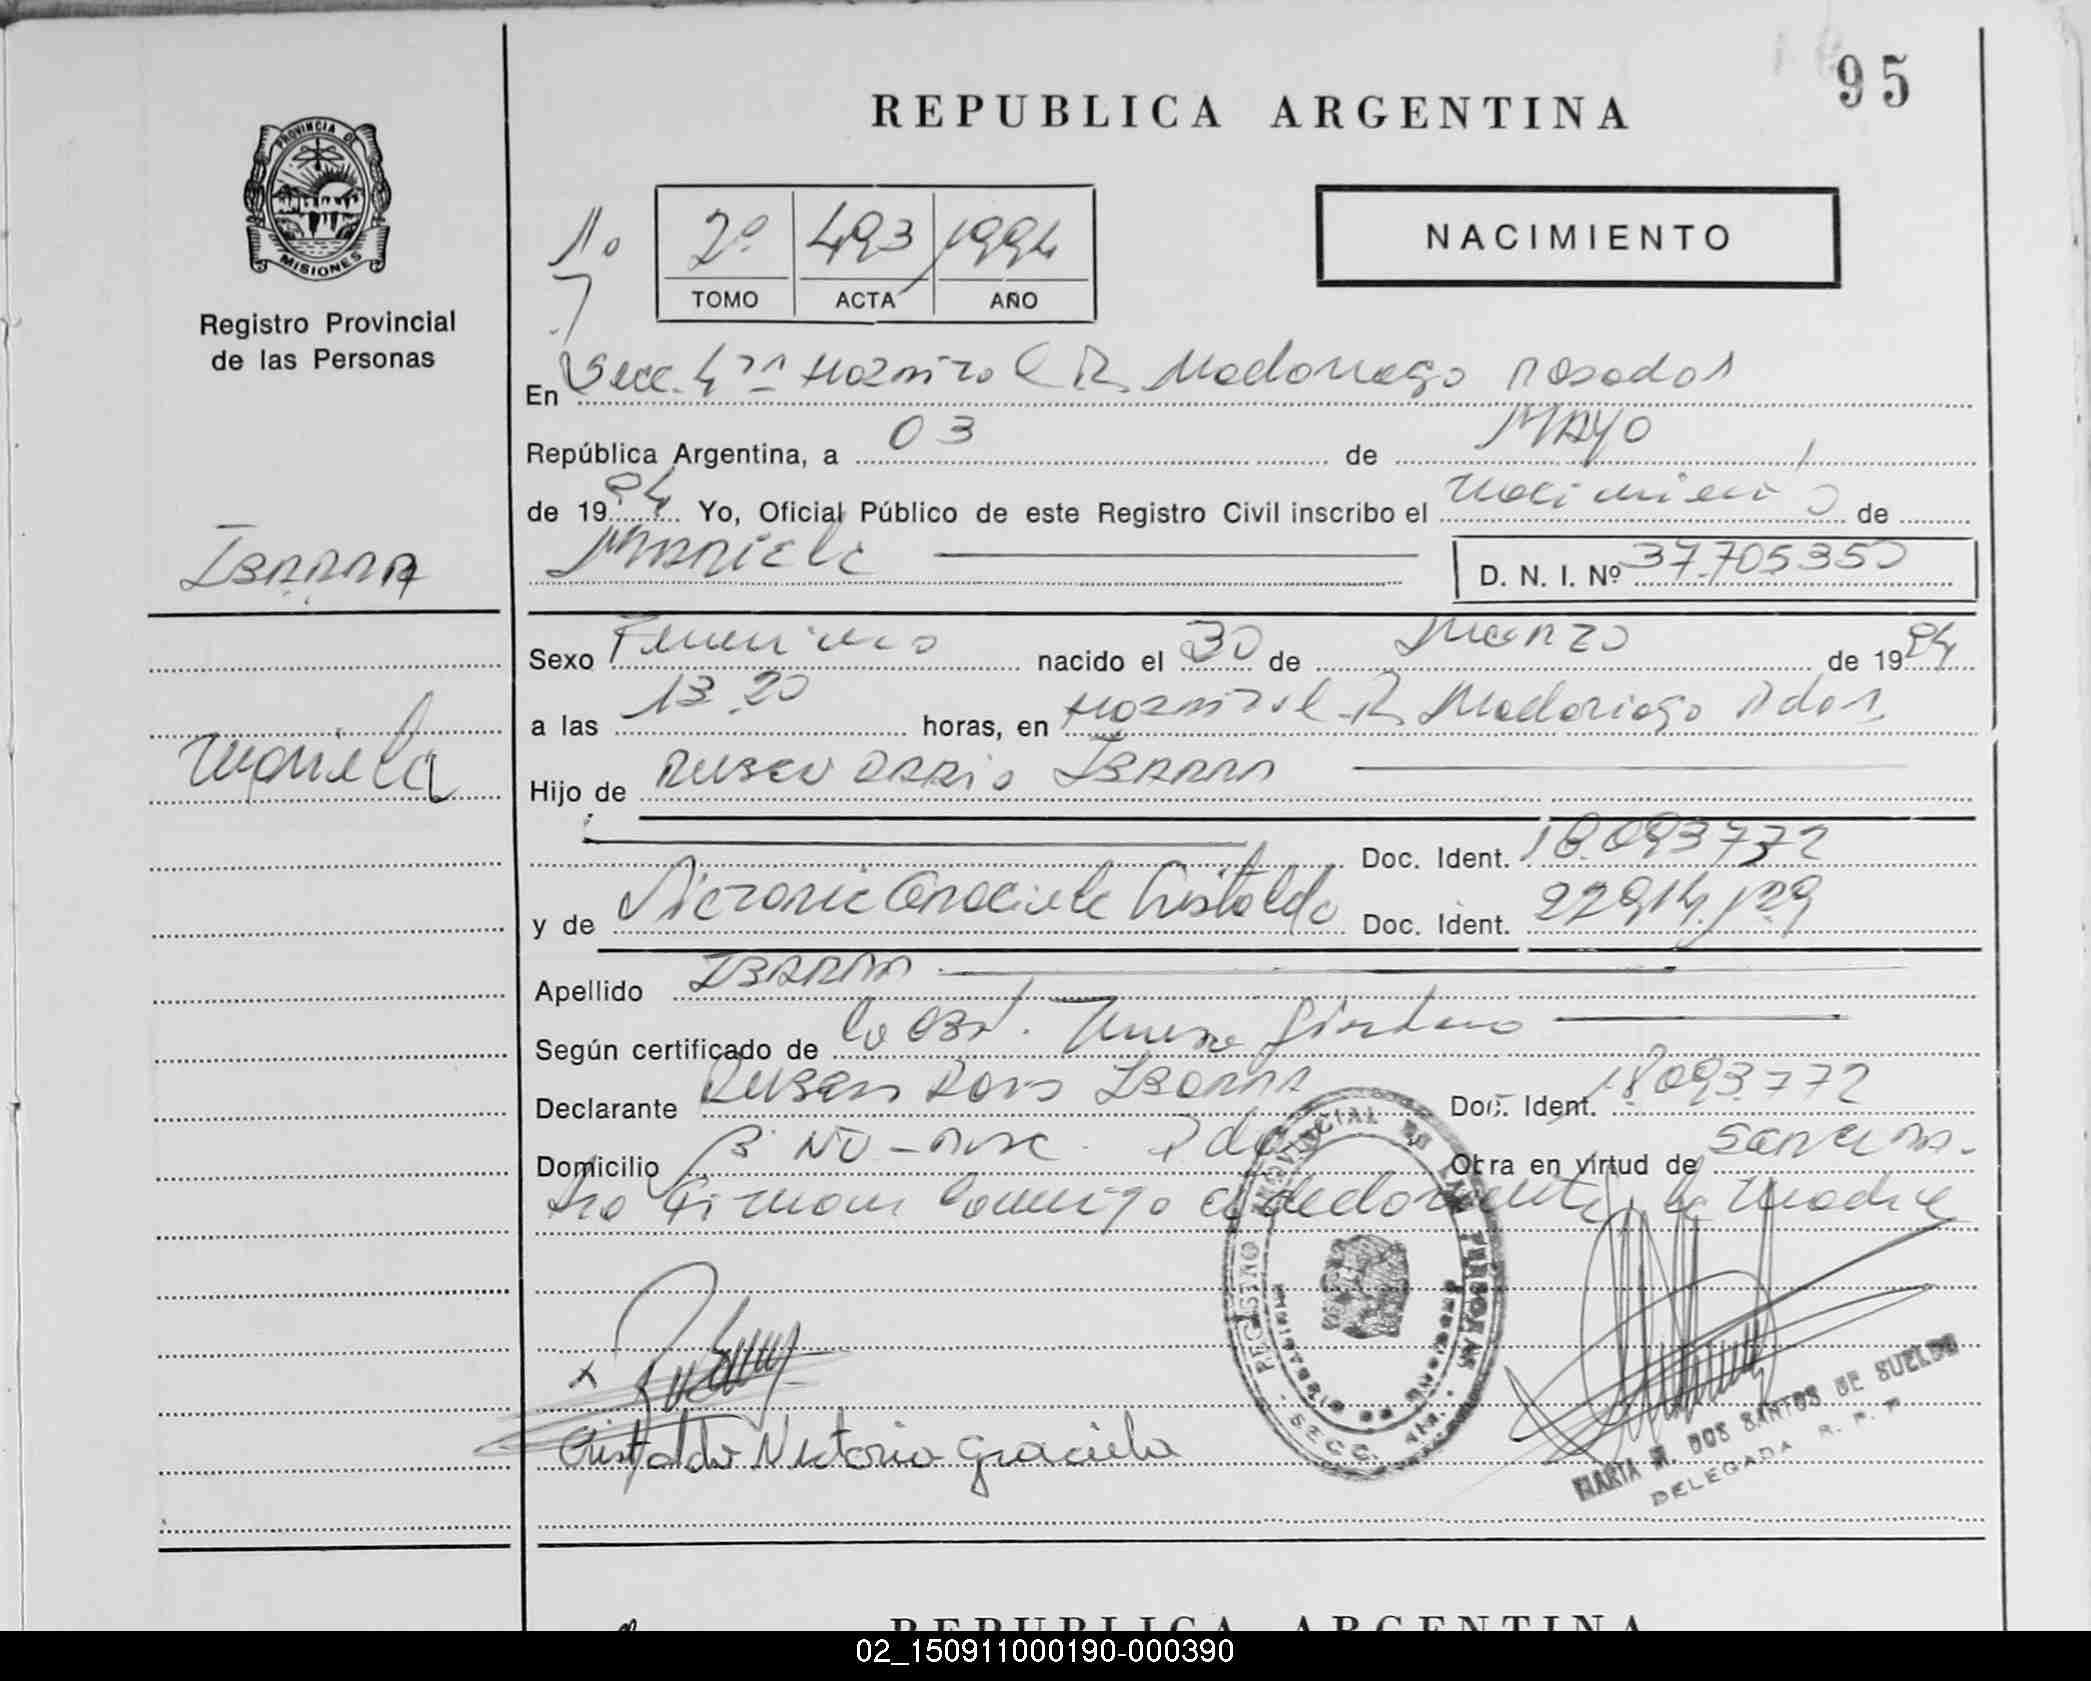 95
REPUBLICA ARGENTINA
PROVINCIA DE
MISIONES
Registro Provincial
de las Personas
NACIMIENTO
2º 493 1994
TOMO ACTA AÑO
En Secc. 4ta Hospital R. Madariaga Posadas
República Argentina, a 03 de MAYO
de 1994 Yo, Oficial Público de este Registro Civil inscribo el nacimiento de
IBARRA
MARIELA
D. N. I. Nº 37.705350
Sexo Femenino nacido el 30 de Marzo de 1994
Mariela
a las 13.20 horas, en Hospital R. Madariaga Pdas.
Hijo de RUBEN DARIO IBARRA
Doc. Ident. 18.093772
y de Victoria Graciela Cristaldo Doc. Ident. 22914.129
Apellido IBARRA
Según certificado de la Obst.
Declarante RUBEN Dario IBARRA Doc. Ident. 18093.772
Domicilio Bº Pdas Otra en virtud de
Firman conmigo el declarante y la Madre
x Ruben
Cristaldo Victoria Graciela
REGISTRO PROVINCIAL DE LAS PERSONAS
MARIA M. DOS SANTOS DE SUELDO
DELEGADA R. P. P
REPUBLICA ARGENTINA
02_150911000190-000390